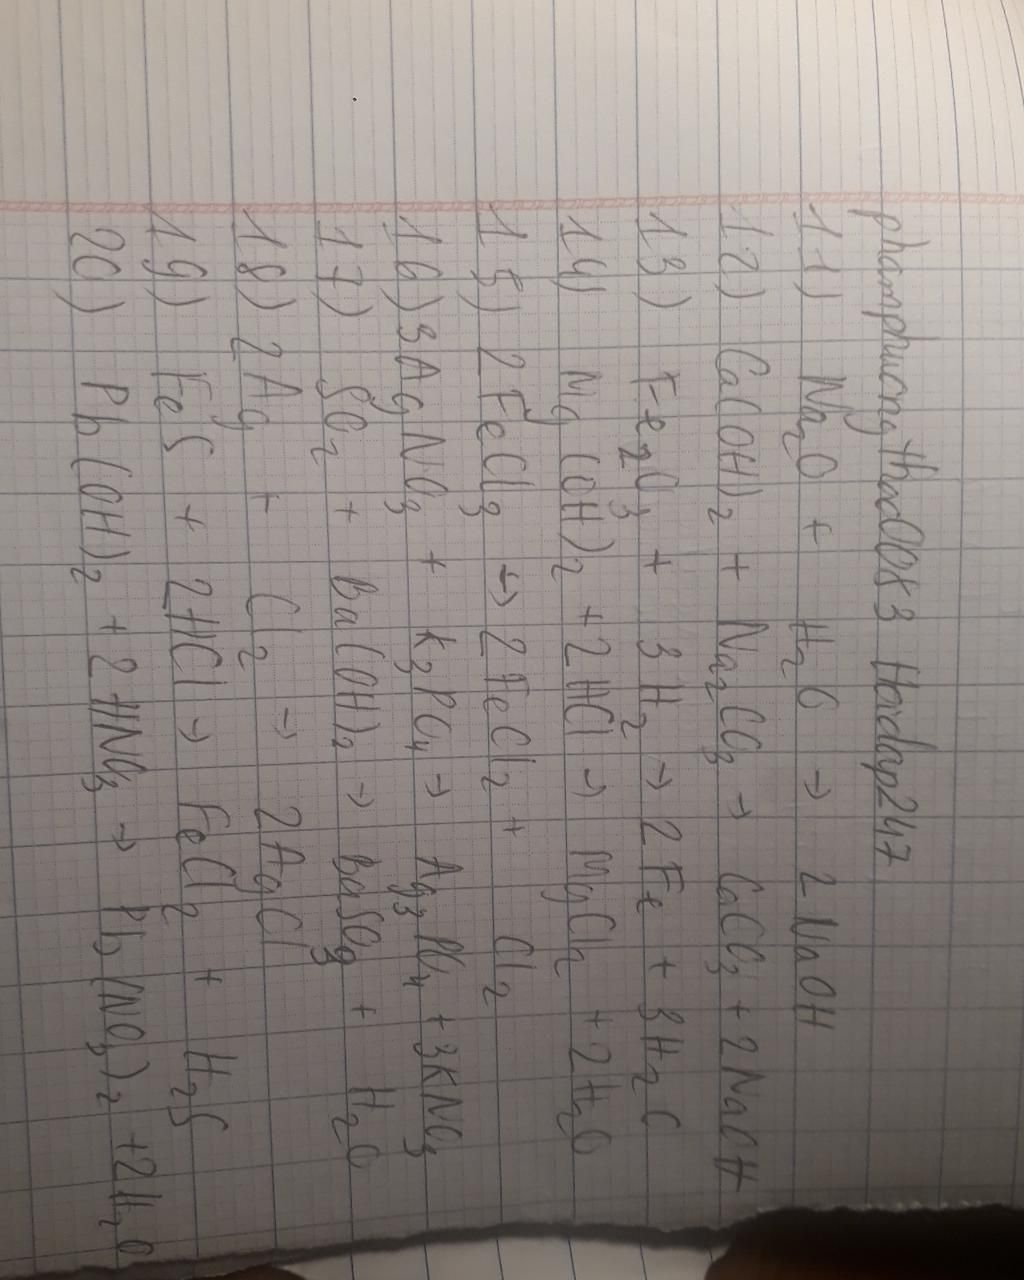 phamphuongthao0083 Hoidap247
11) Na₂O + H₂O → 2 NaOH
12) Ca(OH)₂ + Na₂CO₃ → CaCO₃ + 2NaOH
13) Fe₂O₃ + 3H₂ → 2Fe + 3H₂O
14) Mg(OH)₂ + 2HCl → MgCl₂ + 2H₂O
15) 2FeCl₃ → 2FeCl₂ + Cl₂
16) 3AgNO₃ + K₃PO₄ → Ag₃PO₄ + 3KNO₃
17) SO₂ + Ba(OH)₂ → BaSO₃ + H₂O
18) 2Ag + Cl₂ → 2AgCl
19) FeS + 2HCl → FeCl₂ + H₂S
20) Pb(OH)₂ + 2HNO₃ → Pb(NO₃)₂ + 2H₂O